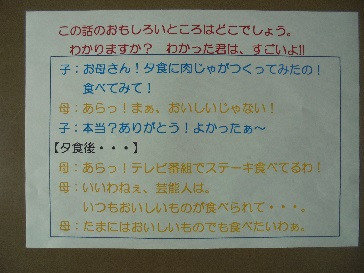 この話のおもしろいところはどこでしょう。
わかりますか？ わかった君は、すごいよ!!
子：お母さん！夕食に肉じゃがつくってみたの！
食べてみて！
母：あらっ！まぁ、おいしいじゃない！
子：本当？ありがとう！よかったぁ～
【夕食後・・・】
母：あらっ！テレビ番組でステーキ食べてるわ！
母：いいわねぇ、芸能人は。
いつもおいしいものが食べられて・・・。
母：たまにはおいしいものでも食べたいわぁ。